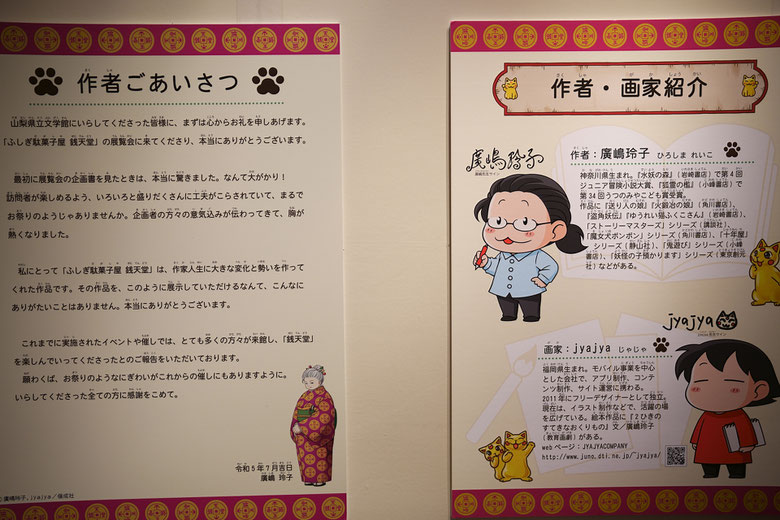 作者ごあいさつ
山梨県立文学館にいらしてくださった皆様に、まずは心からお礼を申しあげます。
「ふしぎ駄菓子屋 銭天堂」の展覧会に来てくださり、本当にありがとうございます。
最初に展覧会の企画書を見たときは、本当に驚きました。なんて大がかり！
訪問者が楽しめるよう、いろいろと盛りだくさんに工夫がこらされていて、まるで
お祭りのようじゃありませんか。企画者の方々の意気込みが伝わってきて、胸が
熱くなりました。
私にとって「ふしぎ駄菓子屋 銭天堂」は、作家人生に大きな変化と勢いを作って
くれた作品です。その作品を、このように展示していただけるなんて、こんなに
ありがたいことはありません。本当にありがとうございます。
これまでに実施されたイベントや催しでは、とても多くの方々が来館し、「銭天堂」
を楽しんでいってくださったとのご報告をいただいております。
願わくば、お祭りのようなにぎわいがこれからの催しにもありますように。
いらしてくださった全ての方に感謝をこめて。
令和5年7月吉日
廣嶋 玲子
廣嶋玲子, jyajya／偕成社
作者・画家紹介
廣嶋玲子
作者：廣嶋玲子 ひろしま れいこ
神奈川県生まれ。『水妖の森』（岩崎書店）で第4回
ジュニア冒険小説大賞、『狐霊の檻』（小峰書店）で
第34回うつのみやこども賞受賞。
作品に『送り人の娘』『火鍛冶の娘』（角川書店）、
『盗角妖伝』『ゆうれい猫ふくこさん』（岩崎書店）、
「ストーリーマスターズ」シリーズ（講談社）、
「魔女犬ボンボン」シリーズ（角川書店）、「十年屋」
シリーズ（静山社）、「鬼遊び」シリーズ（小峰
書店）、「妖怪の子預かります」シリーズ（東京創元
社）などがある。
jyajya
画家：jyajya じゃじゃ
福岡県生まれ。モバイル事業を中心
とした会社で、アプリ制作、コンテ
ンツ制作、サイト運営に携わる。
2011年にフリーデザイナーとして独立。
現在は、イラスト制作などで、活躍の場
を広げている。絵本作品に『2ひきの
すてきなおくりもの』文／廣嶋玲子
（教育画劇）がある。
webページ：JYAJYACOMPANY
http://www.juno.dti.ne.jp/~jyajya/